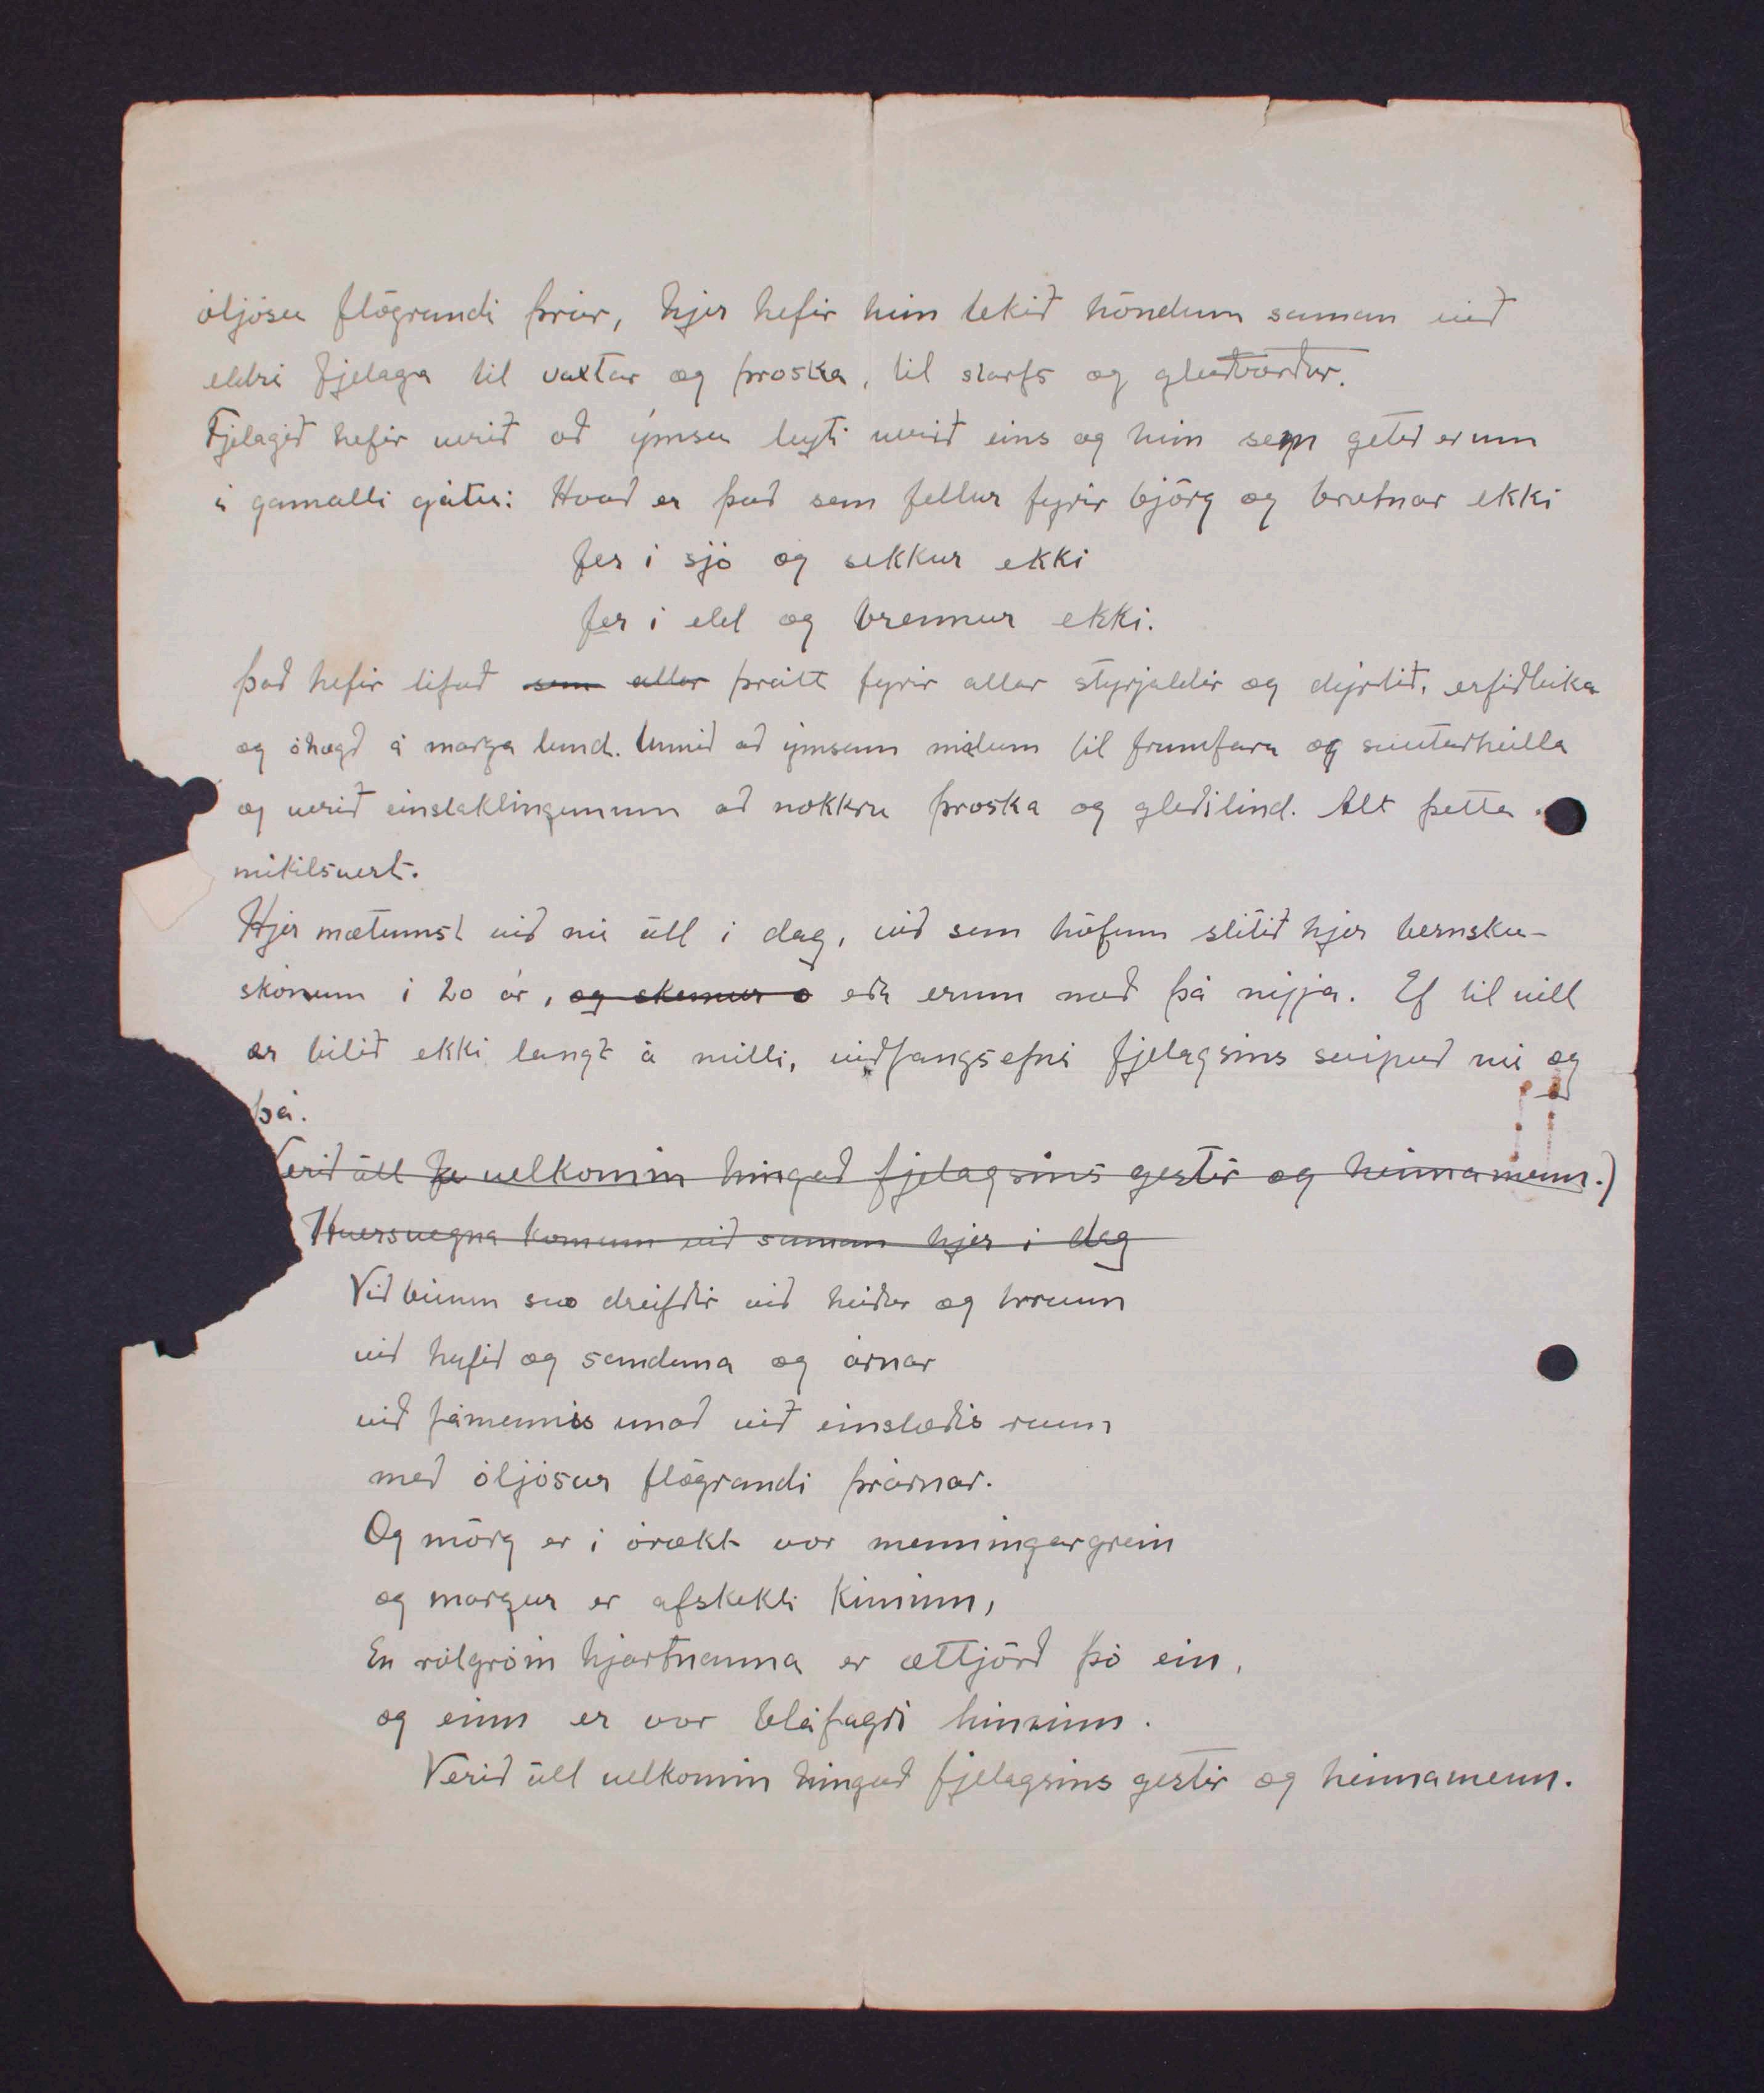 óljósu flögrandi þrár, hjer hefir hún tekið höndum saman við
eldri fjelaga til vaxtar og þroska, til starfs og gleðvarður.
Fjelagið hefir verið að ýmsu leyti verið eins og hún sem getið er um
í gamalli gátu: Hvað er það sem fellur fyrir björg og brotnar ekki
fer í sjó og sekkur ekki
fer í eld og brennur ekki.
Það hefir lifað sem allar þrátt fyrir allar styrjaldir og dýrtíð, erfiðleika
og óhægð á marga lund. Unnið að ýmsum málum til framfara og sveitarheilla
og verið einstaklingunum að nokkru þroska og gleðilind. Alt þetta
mikilsvert.
Hjer mætumst við nú öll í dag, við sem höfum slitið hjer bernsku-
skónum í 20 ár, og skemur eða erum með þá nýja. Ef til vill
er bilið ekki langt á milli, viðfangsefni fjelagsins svipuð nú og
þá.
Verið öll velkomin hingað fjelagsins gestir og heimamenn.)
Hversvegna komum við saman hjer í dag
Við búum svo dreifðir við heiðar og hraun
við hafið og sandana og árnar
við fámennis unað við einstæðis raun
með óljósar flögrandi þrárnar.
Og mörg er í órækt vor menningargrein
og margur er afskekti kiminn,
En rótgróin hjartnanna er ættjörð þó ein,
og einn er vor bláfagri himininn.
Verið öll velkomin hingað fjelagsins gestir og heimamenn.